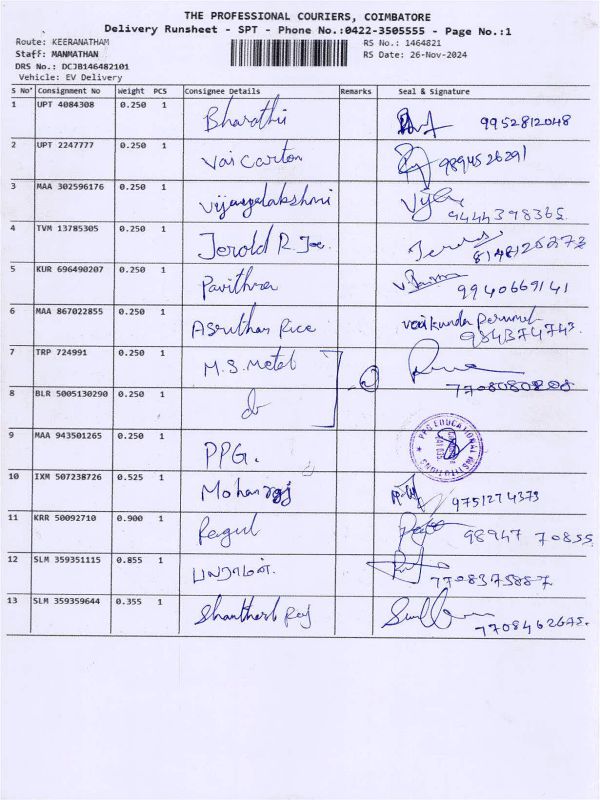 THE PROFESSIONAL COURIERS, COIMBATORE
Delivery Runsheet - SPT - Phone No.:0422-3505555 - Page No.:1
Route: KEERANATHAM RS No.: 1464821
Staff: MANMATHAN RS Date: 26-Nov-2024
DRS No.: DCJB146482101
Vehicle: EV Delivery
S No' Consignment No Weight PCS Consignee Details Remarks Seal & Signature
1 UPT 4084308 0.250 1 Bharathi 9952812048
2 UPT 2247777 0.250 1 Vai carton 9894526291
3 MAA 302596176 0.250 1 Vijayalakshmi 9444398365.
4 TVM 13785305 0.250 1 Jerold R. Joe. 8148126273
5 KUR 696490207 0.250 1 Pavithra 9940669141
6 MAA 867022855 0.250 1 Rice vaikunda Perumal 984374743.
7 TRP 724991 0.250 1 M.S. Metal 7708080808
8 BLR 5005130290 0.250 1
9 MAA 943501265 0.250 1 PPG. PPG EDUCATIONAL INSTITUTIONS
10 IXM 507238726 0.525 1 Mohanraj 9751274373
11 KRR 50092710 0.900 1 Ragul 98947 70855
12 SLM 359351115 0.855 1 7708375887
13 SLM 359359644 0.355 1 Raj 7708462675.